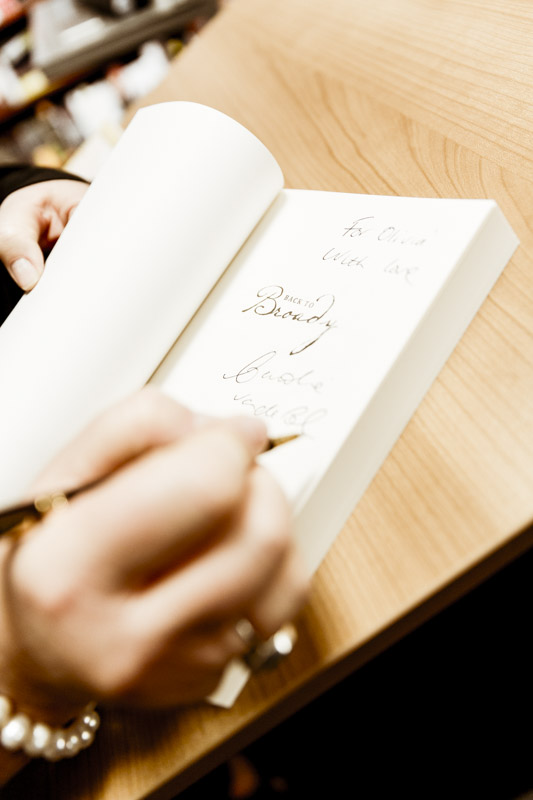 For Olivia
With love
BACK TO
Broady